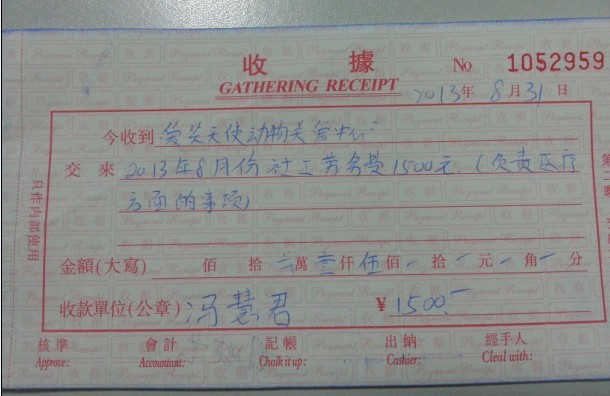 收據 No 1052959
GATHERING RECEIPT 2013年8月31日
今收到 爱笑天使动物关爱中心
交來 2013年8月份社工劳务费1500元.(负责医疗
方面的事项)
金額(大寫) 佰 拾 萬壹仟伍佰 拾 元 角 分
收款單位(公章) 冯慧君 ¥1500.-
只作內部使用
第二聯
核準 會計 記帳 出納 經手人
Approce: Accountant: Chalk it up: Cashier: Cleal with: